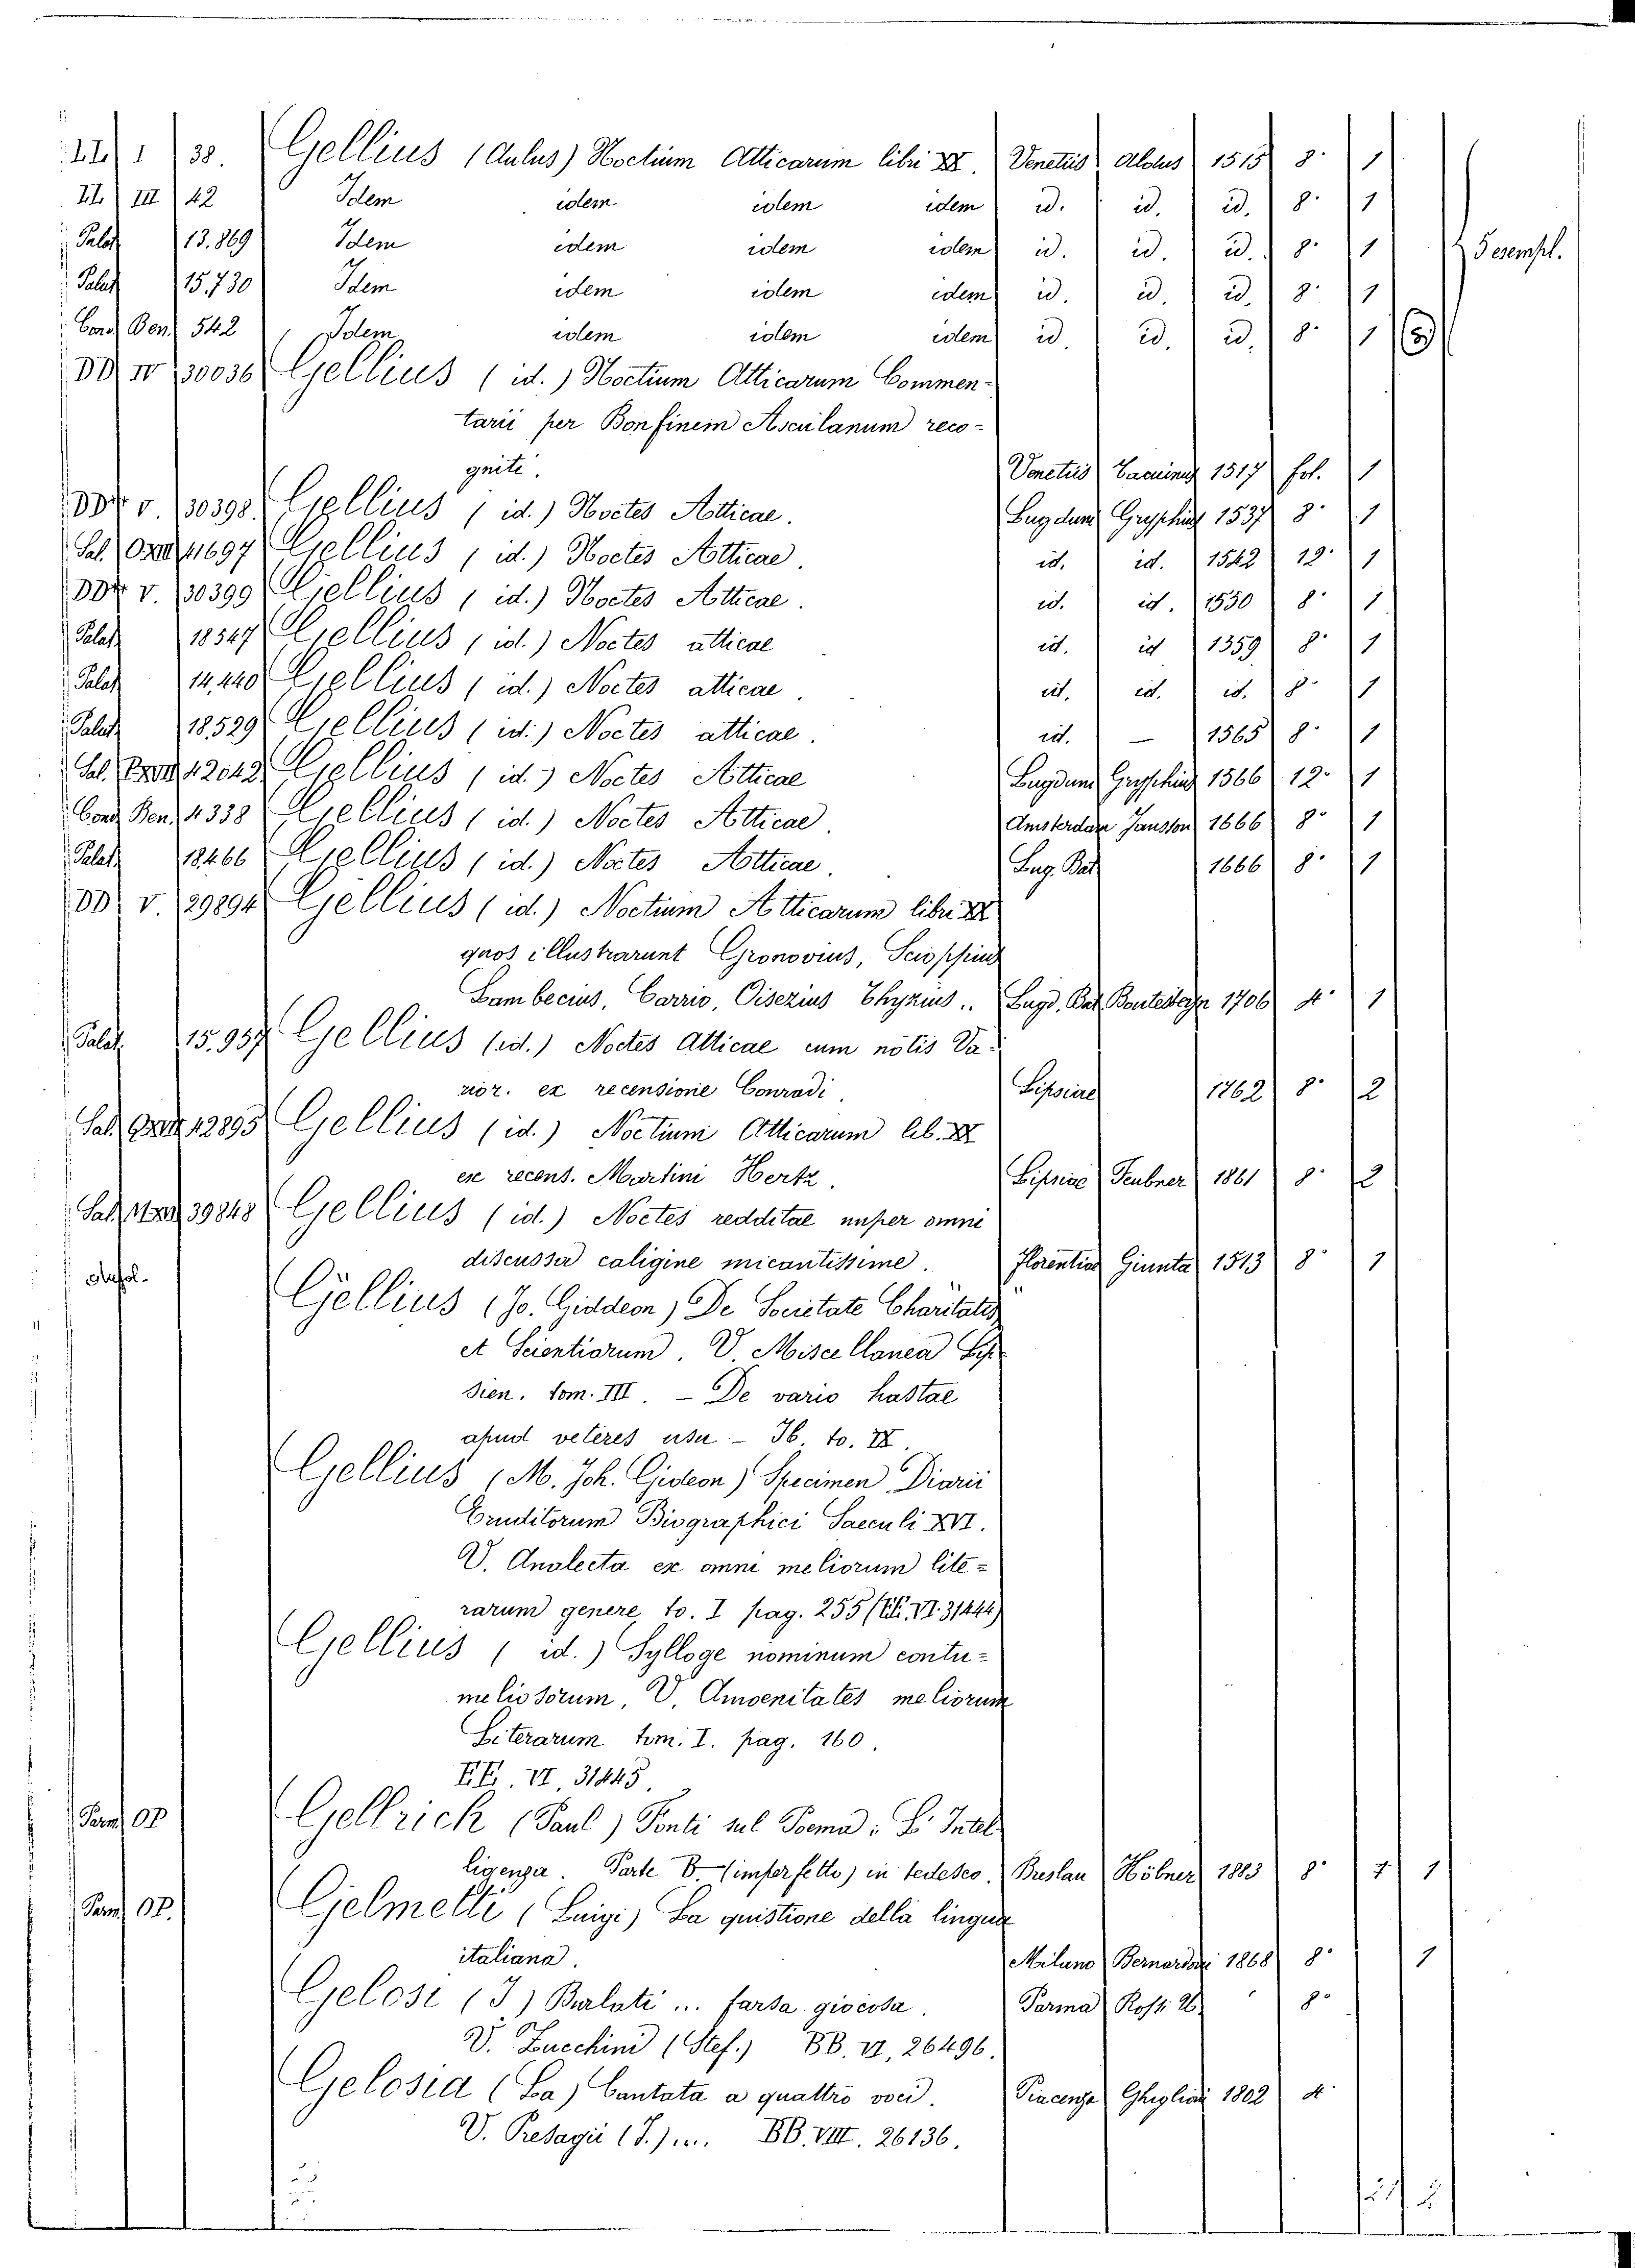 I 38. Gellius (Aulus) Noctium Atticarum libri XX. Venetiis Aldus 1515 8° 1
III 42 Idem idem idem idem id. id. id. 8° 1
Palat 13.869 Idem idem idem idem id. id. id. 8° 1 5 esempl.
Palat 15.730 Idem idem idem idem id. id. id. 8° 1
Cond Ben. 542 Idem idem idem idem id. id. id. 8° 1
DD IV 30036 Gellius (id.) Noctium Atticarum Commen-
tarii per Bonfinem Asculanum reco-
gniti. Venetiis 1517 fol. 1
V. 30398. Gellius (id.) Noctes Atticae. Lugduni Gryphius 1537 8° 1
Sal. 41697 Gellius (id.) Noctes Atticae. id. id. 1542 12° 1
V. 30399 Gellius (id.) Noctes Atticae. id. id. 1550 8° 1
Palat 18547 Gellius (id.) Noctes atticae id. id 1559 8° 1
Palat 14,440 Gellius (id.) Noctes atticae. id. id. id. 8° 1
Palat 18,529 Gellius (id.) Noctes atticae. id. — 1565 8° 1
Sal. 42042 Gellius (id.) Noctes Atticae Lugduni Gryphius 1566 12° 1
Cond Ben. 4338 Gellius (id.) Noctes Atticae. Amsterdam Jansson 1666 8° 1
Palat. 18466 Gellius (id.) Noctes Atticae. Lug. Bat 1666 8° 1
DD V. 29894 Gellius (id.) Noctium Atticarum libri XX
quos illustrarunt Gronovius, Scioppius
Lambecius, Carrio, Oisezius Thyzius.. Lugd. Bat. Boutesteyn 1706 4° 1
Palat. 15.957 Gellius (id.) Noctes Atticae cum notis Va-
rior. ex recensione Conradi. Lipsiae 1762 8° 2
Sal. 12895 Gellius (id.) Noctium Atticarum lib. XX
ex recens. Martini Hertz. Lipsiae Teubner 1861 8° 2
Sal. 39848 Gellius (id.) Noctes redditae nuper omni
discussa caligine micantissime. Florentiae Giunta 1513 8° 1
Gëllius (Jo. Giddeon) De Societate Charitatis
et Scientiarum. V. Miscellanea Lip-
sien. tom. III. — De vario hastae
apud veteres usu. — Ib. to. IX.
Gellius (M. Joh. Gideon) Specimen Diarii
Eruditorum Biographici Saeculi XVI.
V. Analecta ex omni meliorum lite-
rarum genere, to. I pag. 255 (EE. VI. 31444)
Gellius (id.) Sylloge nominum contu-
meliosorum, V. Amoenitates meliorum
Literarum tom. I. pag. 160.
EE. VI. 31445.
Parm OP Gellrich (Paul) Ponti sul Poema: L' Intel-
ligenza. Parte B (imperfetto) in tedesco. Breslau Höbner 1883 8° 7 1
Parm OP. Gelmetti (Luigi) La quistione della lingua
italiana. Milano Bernardoni 1868 8° 1
Gelosi (I) Burlati ... farsa giocosa. Parma Rossi U. 8°
V. Zucchini (Stef.) BB. VI, 26496.
Gelosia (La) Cantata a quattro voci. Piacenza Ghiglioni 1802 4°
V. Presagii (I.)... BB. VIII. 26136.